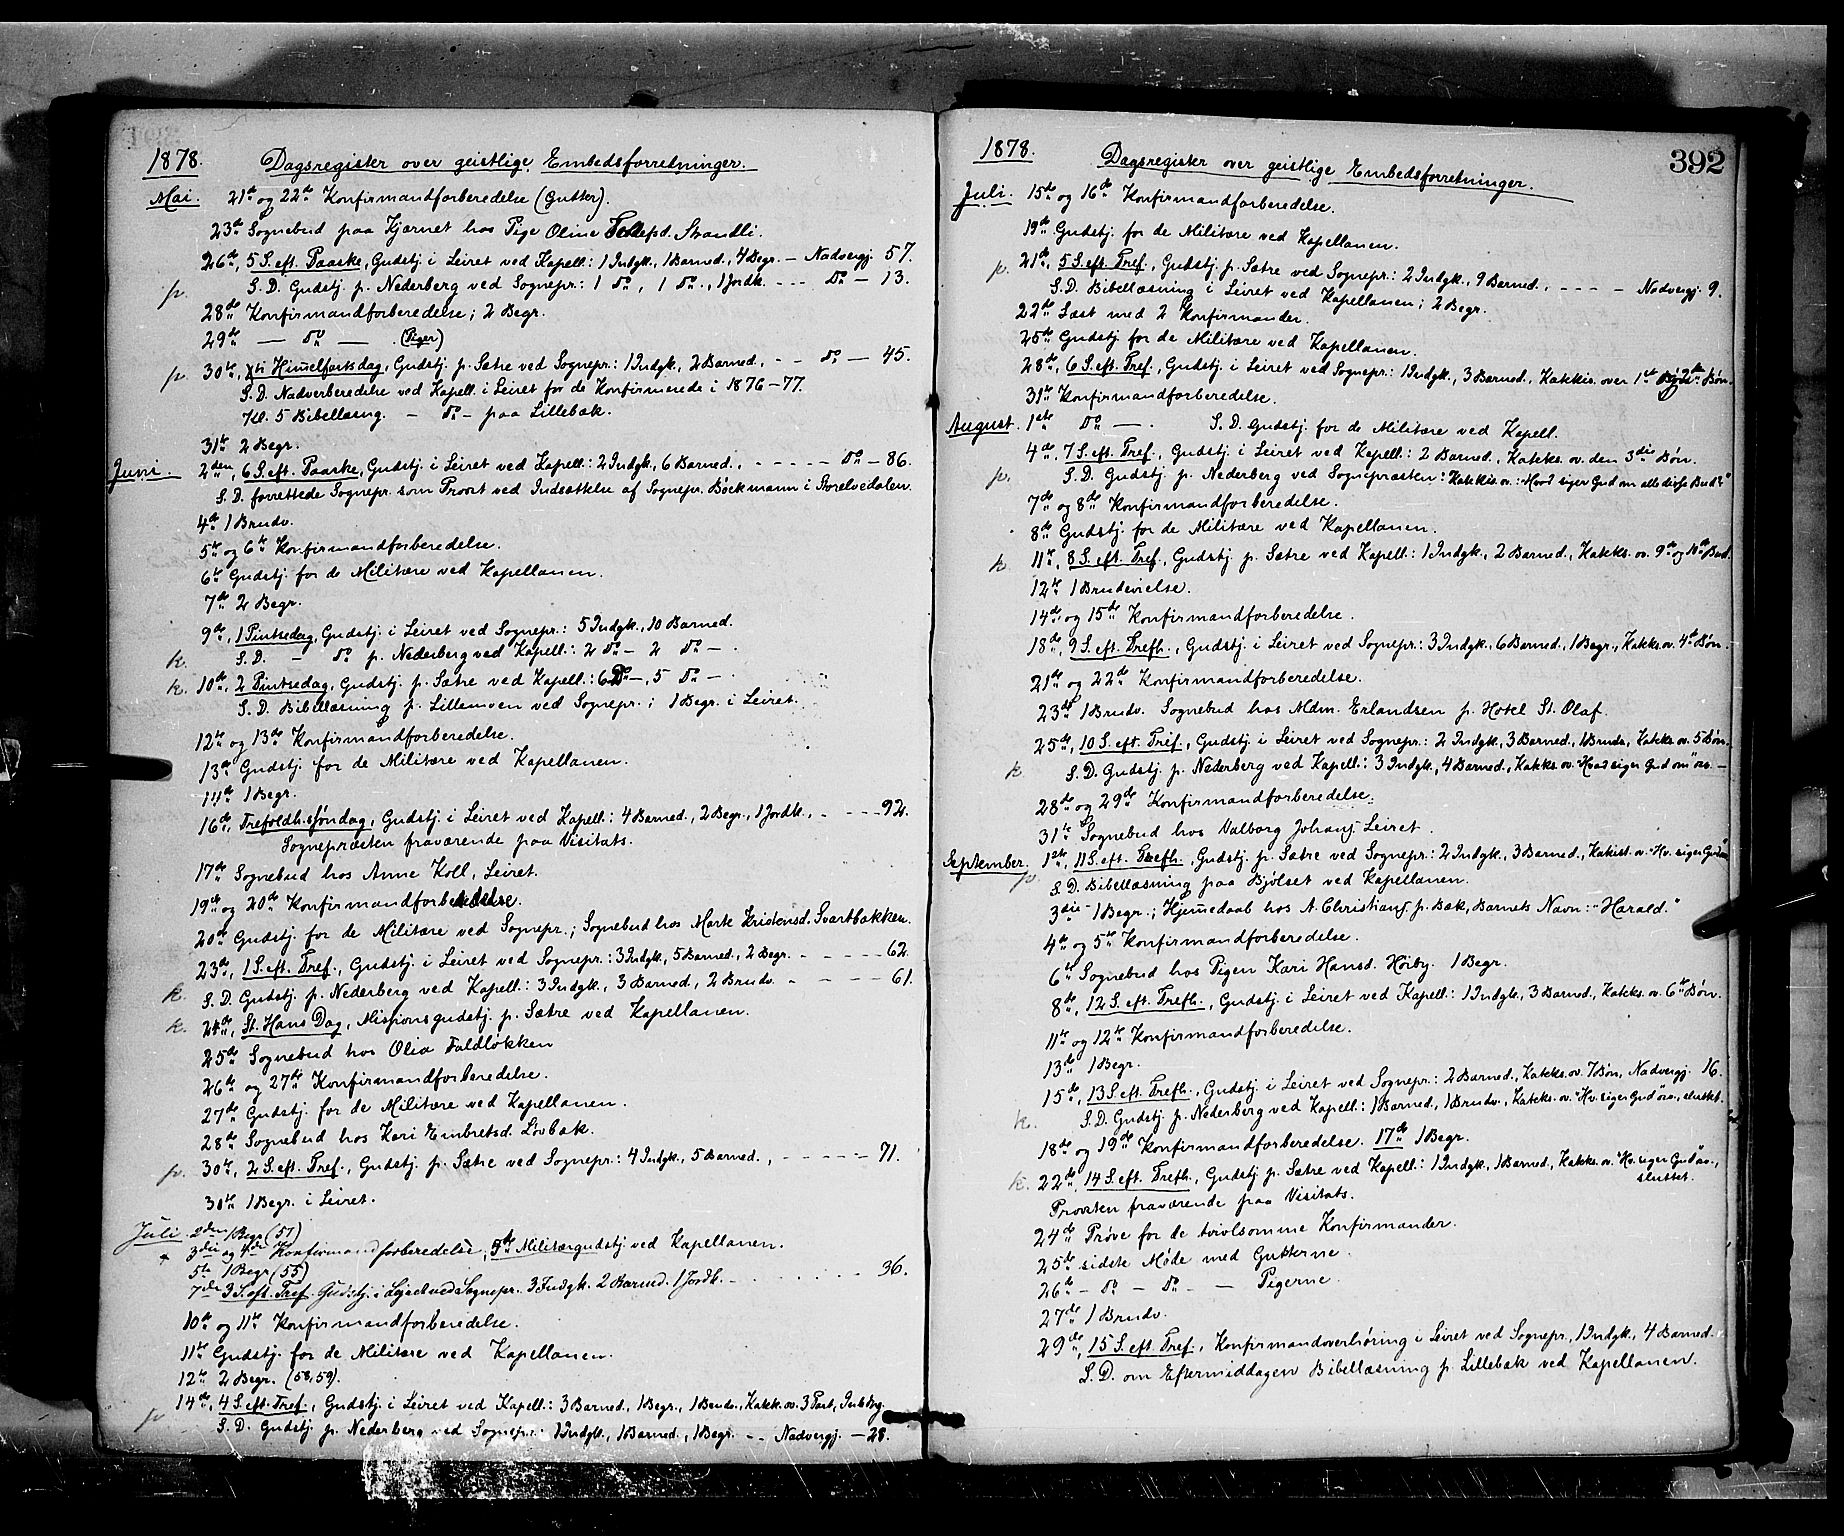 1878. Dagsregister over geistlige Embedsforretninger.
Mai. 21de og 22de Konfirmandforberedelse (Gutter).
23de Sognebud paa Kjærnet hos Pige Oline Tollefsd. Strandli.
26de, 5 S. eft. Paaske, Gudstj. i Leiret ved Kapell.: 1 Indgk., 1 Barned., 4 Begr. — Nadvergj. 57.
p. S. D. Gudstj. p. Nederberg ved Sognepr.: 1 Do, 1 Do., 1 Jordk. - - - Do — 13.
28de Konfirmandforberedelse; 2 Begr.
29de — Do — (Piger)
p. 30te, Kti Himelfartsdag, Gudstj. p. Sætre ved Sognepr.: 1 Indgk., 2 Barned., - - Do — 45.
S. D. Nadverberedelse ved Kapell. i Leiret for de Konfirmerede i 1876—77.
Kl. 5 Bibellæsng. — Do — paa Lillebak.
31te 2 Begr.
Juni. 2den, 6 S. eft. Paaske, Gudstj. i Leiret ved Kapell.: 2 Indgk., 6 Barned., - - - - - Do — 86.
S. D. forrettede Sognepr. som Provst ved Indsættelse af Sognepr. Böckmann i Storelvedalen.
4de 1 Brudv.
5te og 6te Konfirmandforberedelse.
6te Gudstj. for de Militære ved Kapellanen.
7de 2 Begr.
9de, 1 Pintsedag, Gudstj. i Leiret ved Sognepr.: 5 Indgk., 10 Barned.
k. S. D. — Do p. Nederberg ved Kapell.: 2 Do — 2 Do — .
k. 10de, 2 Pintsedag, Gudstj. p. Sætre ved Kapell.: 6 Do —, 5 Do — .
S. D. Bibellæsning p. Lillemoen ved Sognepr.; 1 Begr. i Leiret.
12te og 13de Konfirmandforberedelse.
13de Gudstj. for de Militære ved Kapellanen.
14de 1 Begr.
16de, Trefoldh.søndag, Gudstj. i Leiret ved Kapell.: 4 Barned., 2 Begr., 1 Jordk., - - - - 92.
Sognepræsten fraværende paa Visitats.
17de Sognebud hos Anne Koll, Leiret.
19de og 20de Konfirmandforberedelse.
20de Gudstj. for de Militære ved Sognepr.; Sognebud hos Marte Kristensd. Svartbakken.
23de, 1 S. eft. Tref., Gudstj. i Leiret ved Sognepr.: 3 Indgk., 5 Barned., 2 Begr. - - - - - 62.
k. S. D. Gudstj. p. Nederberg ved Kapell.: 3 Indgk., 3 Barned., 2 Brudv. - - - - 61.
k. 24de, St. Hans Dag, Missionsgudstj. p. Sætre ved Kapellanen.
25de Sognebud hos Olia Faldløkken
26te og 27de Konfirmandforberedelse.
27de Gudstj. for de Militære ved Kapellanen.
28de Sognebud hos Kari Embretsd. Lovbak.
p. 30te, 2 S. eft. Tref., Gudstj. p. Sætre ved Sognepr.: 4 Indgk., 5 Barned., - - - - - 71.
30te 1 Begr. i Leiret.
Juli. 2den 1 Begr. (57)
3die og 4de Konfirmandforberedelse, 5te Militærgudstj. ved Kapellanen.
5te 1 Begr. (55)
7de 3 S. eft. Tref. Gudstj. i Lejret ved Sognepr. 3 Indgk. 2 Barned. 1 Jordk. - - - - - 36.
10de og 11te Konfirmandforberedelse.
11te Gudstj. for de Militære ved Kapellanen.
12te 2 Begr. (58, 59).
14de, 4 S. eft. Tref., Gudstj. i Leiret ved Kapell.: 3 Barned., 1 Begr., 1 Brudv., Katek. ov. 3 Part,
p. S. D. Gudstj. p. Nederberg ved Sognepr.: 1 Indgk., 1 Barned., 1 Begr. - - Nadvergj. — 28.
392
1878. Dagsregister over geistlige Embedsforretninger.
Juli. 15de og 16de Konfirmandforberedelse.
19de Gudstj. for de Militære ved Kapellanen.
p. 21de, 5 S. eft. Tref., Gudstj. p. Sætre ved Sognepr.: 2 Indgk., 9 Barned., - - - - Nadvergj. 9.
S. D. Bibellæsning i Leiret ved Kapellanen; 2 Begr.
22de Læst med 2 Konfirmander.
25de Gudstj. for de Militære ved Kapellanen.
28de, 6 S. eft. Tref., Gudstj. i Leiret ved Sognepr.: 1 Indgk., 3 Barned., Katekis. over 1ste og 2den Bøn.
31te Konfirmandforberedelse.
August. 1ste Do — . S. D. Gudstj. for de Militære ved Kapell.
4de, 7 S. eft. Tref., Gudstj. i Leiret ved Kapell.: 2 Barned., Kateks. ov. den 3die Bøn.
p. S. D. Gudstj. p. Nederberg ved Sognepræsten: Katekis. ov.: "Hvad siger Gud om alle disse Bud?"
7de og 8de Konfirmandforberedelse.
8de Gudstj. for de Militære ved Kapellanen.
k. 11te, 8 S. eft. Tref., Gudstj. p. Sætre ved Kapell.: 1 Indgk., 2 Barned., Kateks. ov. 9de og 10de Bud.
12te 1 Brudevielse.
14de og 15de Konfirmandforberedelse.
18de, 9 S. eft. Trefh., Gudstj. i Leiret ved Sognepr.: 3 Indgk., 6 Barned., 1 Begr., Kateks. ov. 4de Bøn.
21de og 22de Konfirmandforberedelse.
23de 1 Brudv. Sognebud hos Mdm. Erlandsen p. Hotel St. Olaf.
25de, 10 S. eft. Tref., Gudstj. i Leiret ved Sognepr.: 2 Indgk., 3 Barned., 1 Brudv., Kateks. ov. 5 Bøn.
k. S. D. Gudstj. p. Nederberg ved Kapell.: 3 Indgk., 4 Barned., Kateks. ov. "Hvad siger Gud om os. —
28de og 29de Konfirmandforberedelse.
31te Sognebud hos Valborg Johansf. Leiret.
September. 1ste, 11 S. eft. Trefh., Gudstj. p. Sætre ved Sognepr.: 2 Indgk., 3 Barned., Kateks. ov. "Hv. siger Gud
p. S. D. Bibellæsning paa Bjølset ved Kapellanen.
3die 1 Begr.; Hjemedaab hos A. Christians. p. Bak, Barnets Navn: "Harald."
4de og 5te Konfirmandforberedelse.
6te Sognebud hos Pigen Kari Hansd. Hørby. 1 Begr.
8de, 12 S. eft. Trefh., Gudstj. i Leiret ved Kapell.: 1 Indgk., 3 Barned., Kateks. ov. 6te Bøn.
11te og 12te Konfirmandforberedelse.
13de 1 Begr.
15de, 13 S. eft. Trefh., Gudstj. i Leiret ved Sognepr.: 2 Barned., Kateks. ov. 7 Bøn, Nadvergj. 16.
k. S. D. Gudstj. p. Nederberg ved Kapell.: 1 Barned., 1 Brudv., Kateks. ov. "Hv. siger Gud os., sluttet.
18de og 19de Konfirmandforberedelse. 17de 1 Begr.
k. 22de, 14 S. eft. Trefh., Gudstj. p. Sætre ved Kapell.: 1 Indgk., 1 Barned., Kateks. ov. "Hv. siger Gud os.,"
sluttet.
Provsten fraværende paa Visitats.
24de Prøve for de tvivlsomme Konfirmander.
25de sidste Møde med Gutterne.
26te — Do — Do — — Pigerne.
27de 1 Brudv.
29de, 15 S. eft. Tref., Konfirmandoverhøring i Leiret ved Sognepr., 1 Indgk., 4 Barned.
S. D. om Eftermiddagen Bibellæsning p. Lillebak ved Kapellanen.